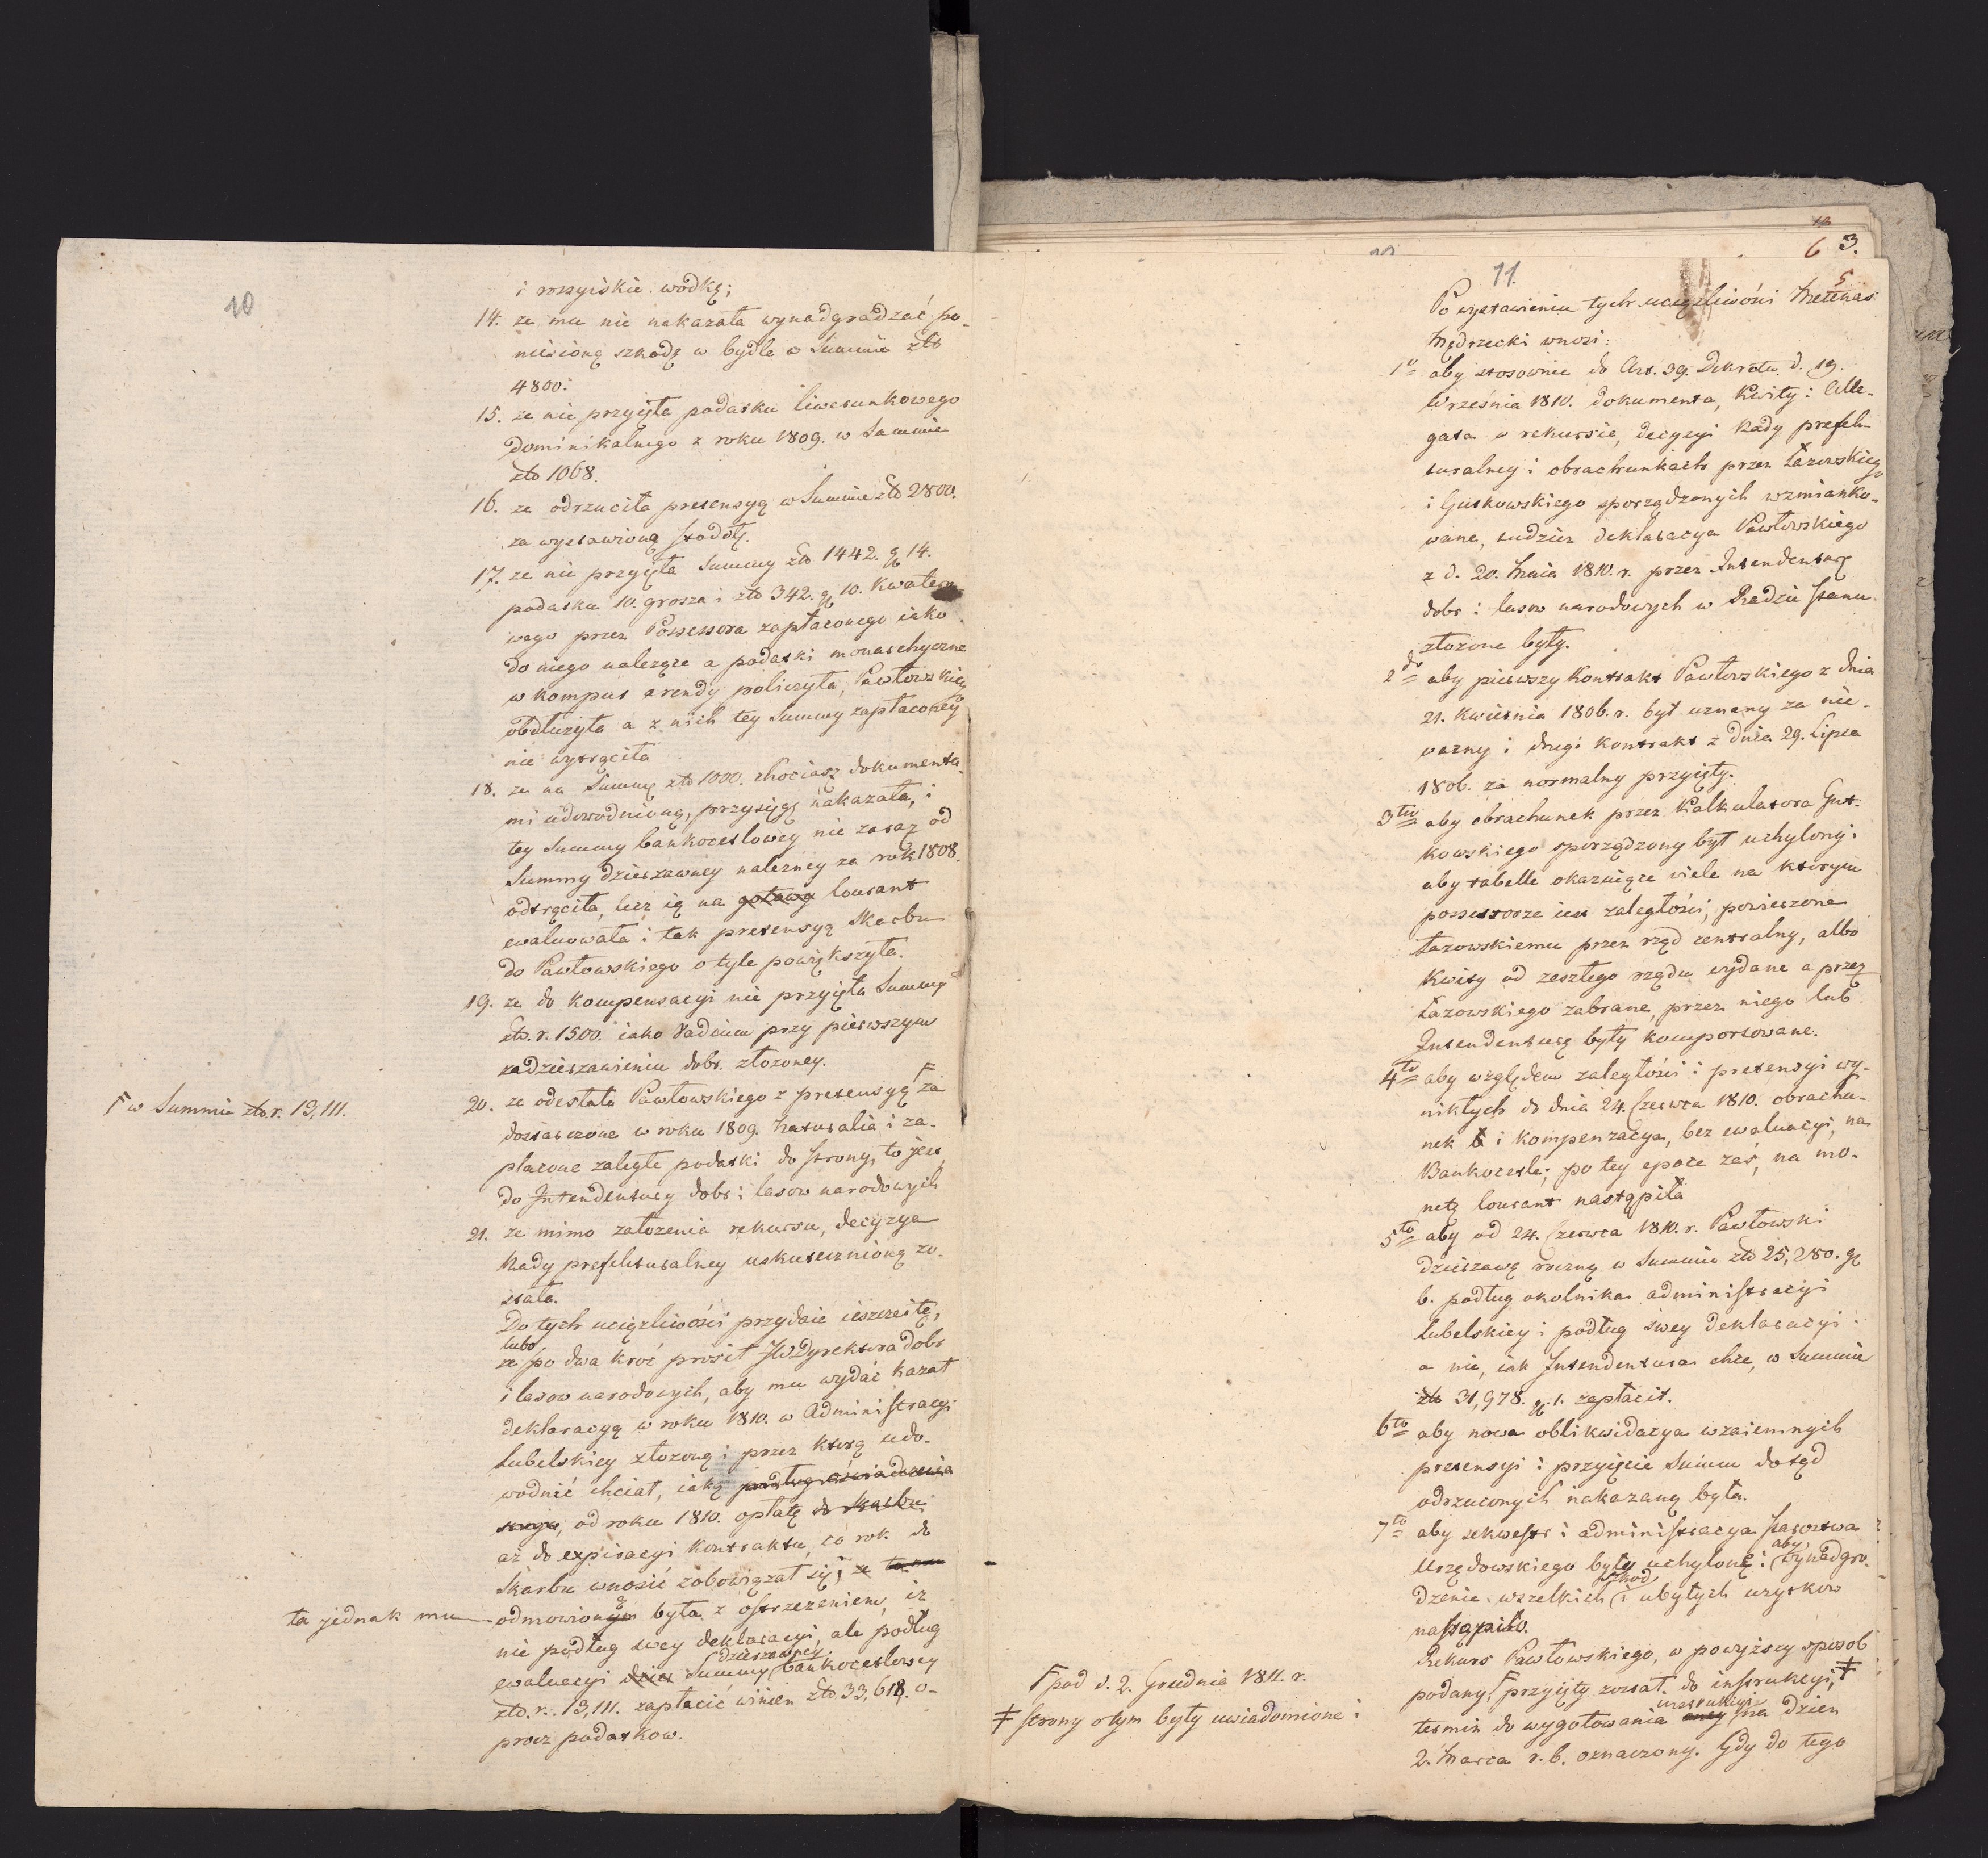 10
i rossyiskie wodkę;
14. ze mu nie nakazała wynadgradzać po-
niesioną szkodę w bydle o Summie złt
4800.
15. ze nie przyięła podatku liwerunkowego
Dominikalnego z roku 1809. w Summie
złt 1068.
16. ze odrzuciła pretensyą w Summie złt 2800.
za wystawioną stodołę.
17. ze nie przyięła Summy złt 1442. g 14.
podatku 10. grosza i złt 342. g 10. Kwatero
wego przez Possessora zapłaconego iako
do niego należące a podatki monarchyczne
w komput arendy policzyła, Pawłowskiego
obdłużyła a z nich tey Summy zapłaconey
nie wytrąciła
18. ze na Summę złt 1000. chociasz dokumenta-
mi udowodnioną, przysięgę nakazała, i
tey Summy bankocetlowey nie zaraz od
Summy dzierzawney nalezney za rok 1808.
odtrąciła, lecz ią na gotową Courant
ewaluowała i tak pretensyą Skarbu
do Pawłowskiego o tyle powiększyła.
19. ze do kompensacyi nie przyięła Summy
złt. r. 1500. iako Vadium przy pierwszym
zadzierzawieniu dobr. złozoney.
20. ze odesłała Pawłowskiego z pretensyą Γ za
Γ w Summie złt. r. 13,111.
dostarczone w roku 1809. Naturalia i za-
płacone zaległe podatki do strony, to jest,
do Intendentury dobr i lasow narodowych
21. ze mimo założenia rekursu, decyzya
Rady prefekturalney uskutecznioną zo-
stała.
Do tych uciązliwości przydaie ieszcze i tę,
lubo
ze po dwa kroć prosił JW Dyrektora dobr
i lasow narodowych, aby mu wydać kazał
deklaracyą w roku 1810. w Administracyi
Lubelskiey złozoną i przez którą udo-
wodnić chciał, iaką podług oświadczenia
swego, od roku 1810. opłatę do Skarbu
aż do expiracyi Kontraktu, co rok do
Skarbu wnosić zobowiązał się; ze ta mu
ta jednak mu odmowioną była z ostrzezeniem, iż
nie podług swey deklaracyi, ale podług
dzierzawney
ewaluacyi dzier Summy bankocetlowey
złt. r. 13,111. zapłacić winien złt. 33,618. o-
procz podatkow.

18
6 3.
11.
5
Po wystawieniu tych uciązliwości Mecenas
Mędrzecki wnosi:
1º aby stosownie do Art. 39. Dekretu d. 19.
Września 1810. dokumenta, Kwity i Alle-
gata w rekursie, decyzyi Rady prefek-
turalney i obrachunkach przez Łazowskiego
i Gutkowskiego sporządzonych wzmianko-
wane, tudziez deklaracya Pawłowskiego
z d. 20. Maia 1810. r. przez Intendenturę
dobr i lasow narodowych w Radzie Stanu
złozone były.
2do aby pierwszy Kontrakt Pawłowskiego z dnia
21. Kwietnia 1806. r. był uznany za nie-
ważny i drugi kontrakt z dnia 29. Lipca
1806. za normalny przyięty.
3tio aby obrachunek przez Kalkulatora Gut-
kowskiego sporządzony był uchylony i
aby tabelle okazuiące wiele na którym
possessorze iest zaległości, powierzone
Łazowskiemu przez rząd centralny, albo
Kwity od zeszłego rządu wydane a przez
Łazowskiego zabrane, przez niego lub
Intendenturę były komportowane.
4to aby względem zaległości i pretensyi wy-
nikłych do dnia 24. Czerwca 1810. obrachu-
nek i kompenzacya, bez ewaluacyi, na
Bankocetle; po tey epoce zaś, na mo-
netę Courant nastąpiła
5to aby od 24. Czerwca 1810. r. Pawłowski
dzierzawę roczną w Summie złt 25,280. g
6. podług okolnika administracyi
Lubelskiey i podług swey deklaracyi
a nie, iak Intendentura chce, w Summie
złt 31,978. g. 1. zapłacił.
6to aby nowa oblikwidacya wzaiemnych
pretensyi i przyięcie Summ dotąd
odrzuconych nakazaną była.
7mo aby sekwestr i administracya Starostwa
Urzędowskiego były uchylone i aby wynadgro-
szkod
dzenie wszelkich i ubytych uzyskow
nastąpiło.
Rekurs Pawłowskiego, w powyższy sposob
podany, Γ przyięty został do instrukcyi, ‡
Γ pod d. 2. Grudnia 1811. r.
‡ strony o tym były uwiadomione i
instrukcyi
termin do wygotowania oney na dzien
2. Marca r. b. oznaczony. Gdy do tego